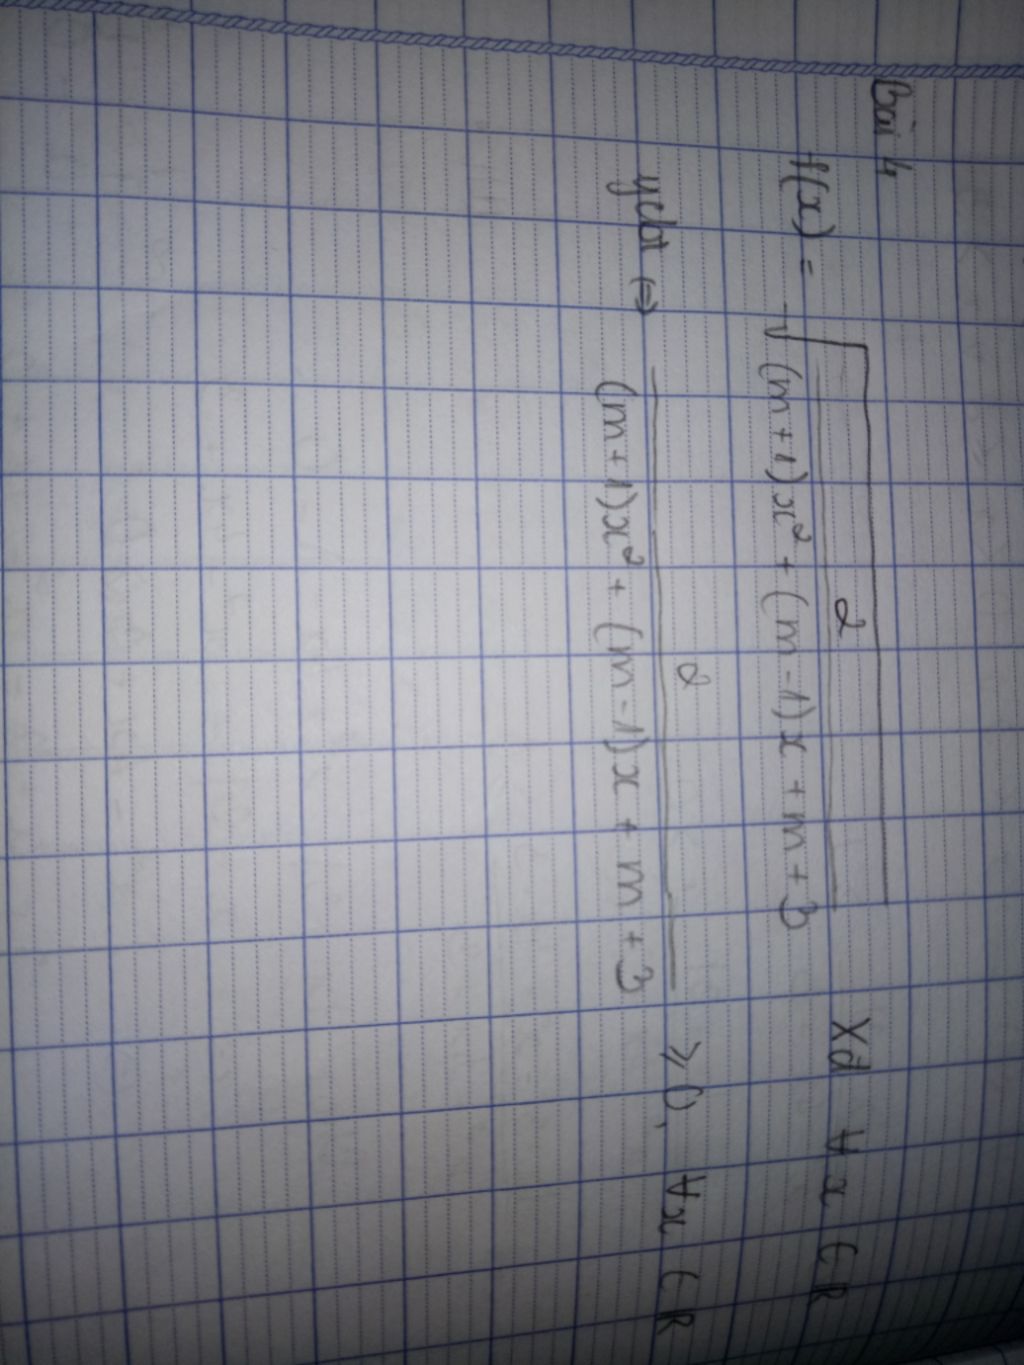 Bài 4
f(x) = √(2 / ((m+1)x² + (m-1)x + m + 3)) Xđ ∀ x ∈ R
ycbt ⇔ 2 / ((m+1)x² + (m-1)x + m + 3) ⩾ 0, ∀x ∈ R